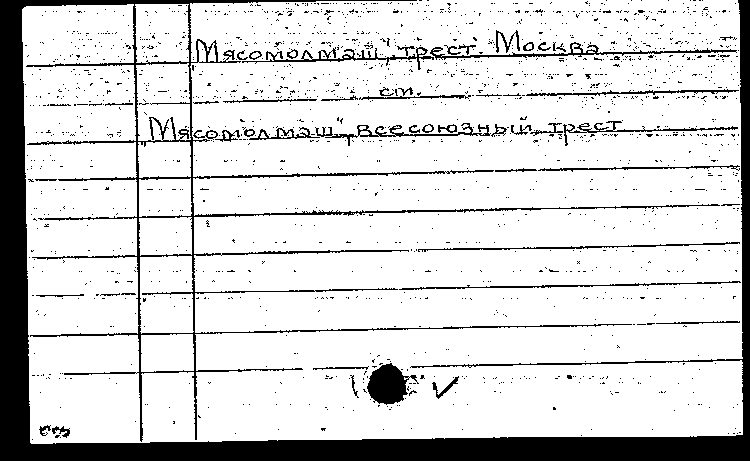 „Мясомолмаш", трест. Москва
см.
„Мясомолмаш", всесоюзный трест